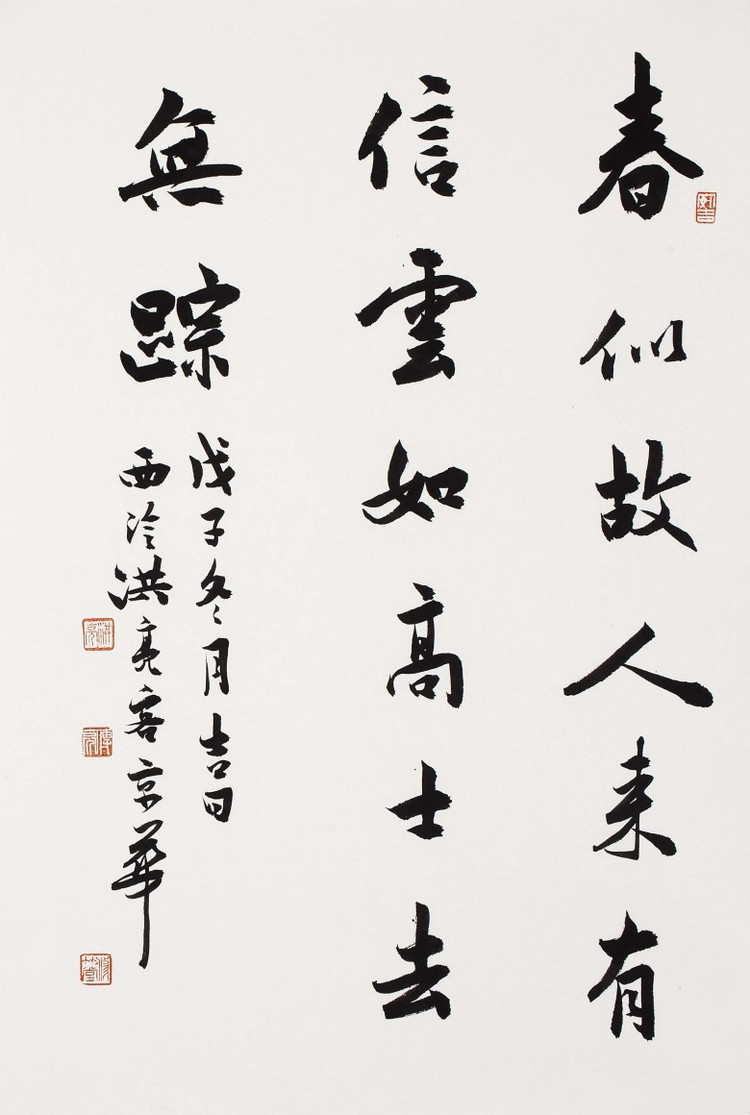 春似故人来有
信雲如高士去
無踪
戊子冬月吉日
西泠洪亮客京華